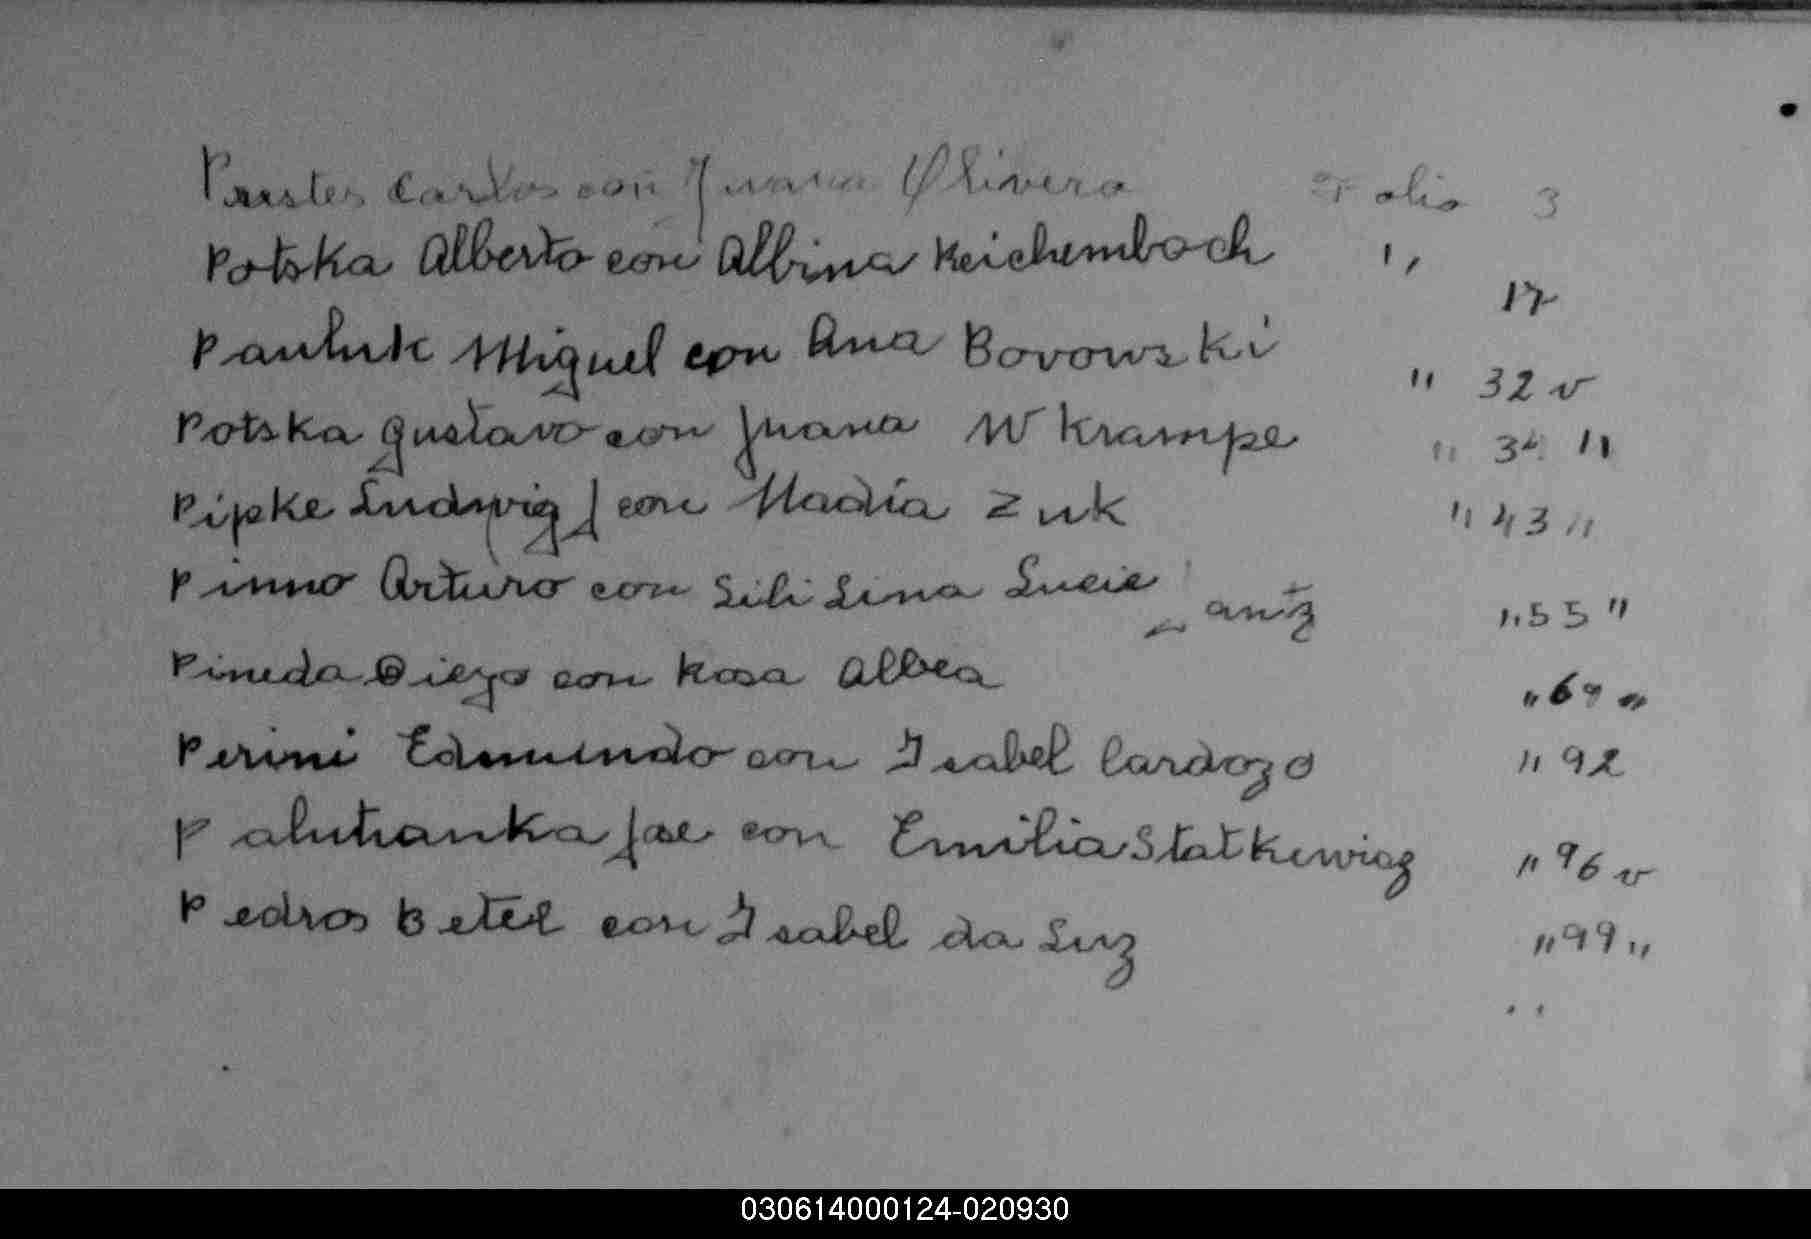 Prestes Carlos con Juana Olivera Folio 3
Potska Alberto con Albina Reichembach " 17
Pauluk Miguel con Ana Bovowski " 32 v
Potska Gustavo con Juana W Krampe " 34 "
Pipke Ludwig J con Nadia Zuk " 43 "
Pinno Arturo con Lili Lina Lucie Lantz " 55 "
Pineda Diego con Rosa Albea " 69 "
Perini Edmundo con Isabel Cardozo " 92
Paluhanka Jse con Emilia Statkewicz " 96 v
Pedros Betel con Isabel da Luz " 99 "
030614000124-020930